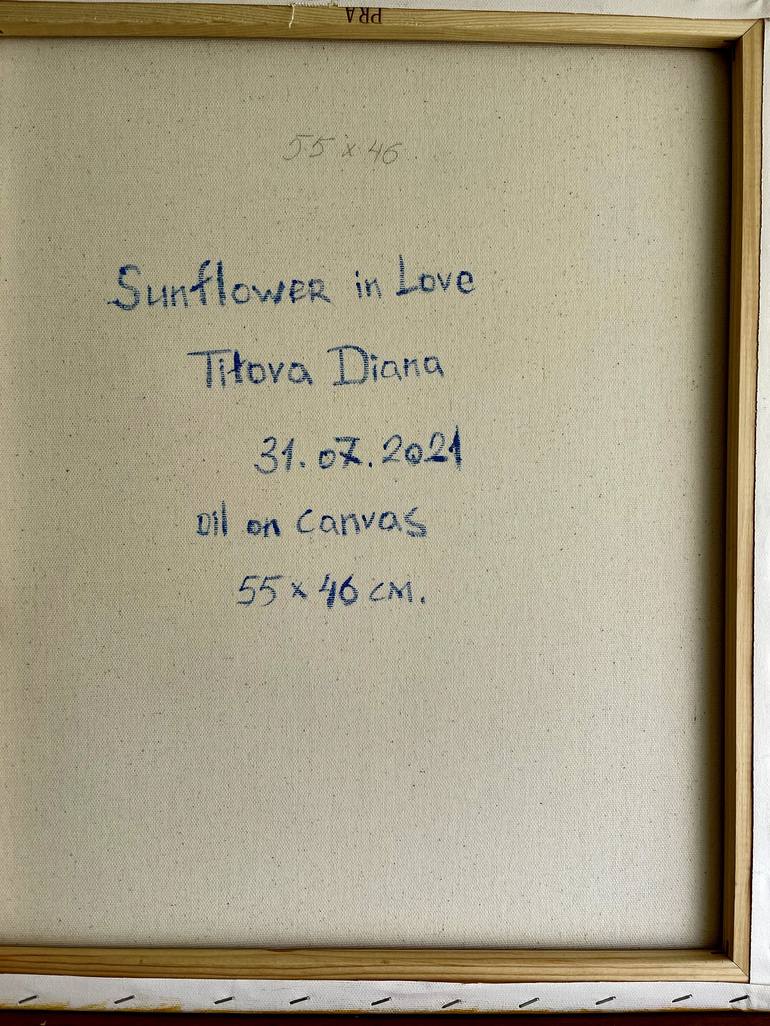 PRA
55 x 46
Sunflower in Love
Titova Diana
31.07.2021
oil on canvas
55 x 46 cm.